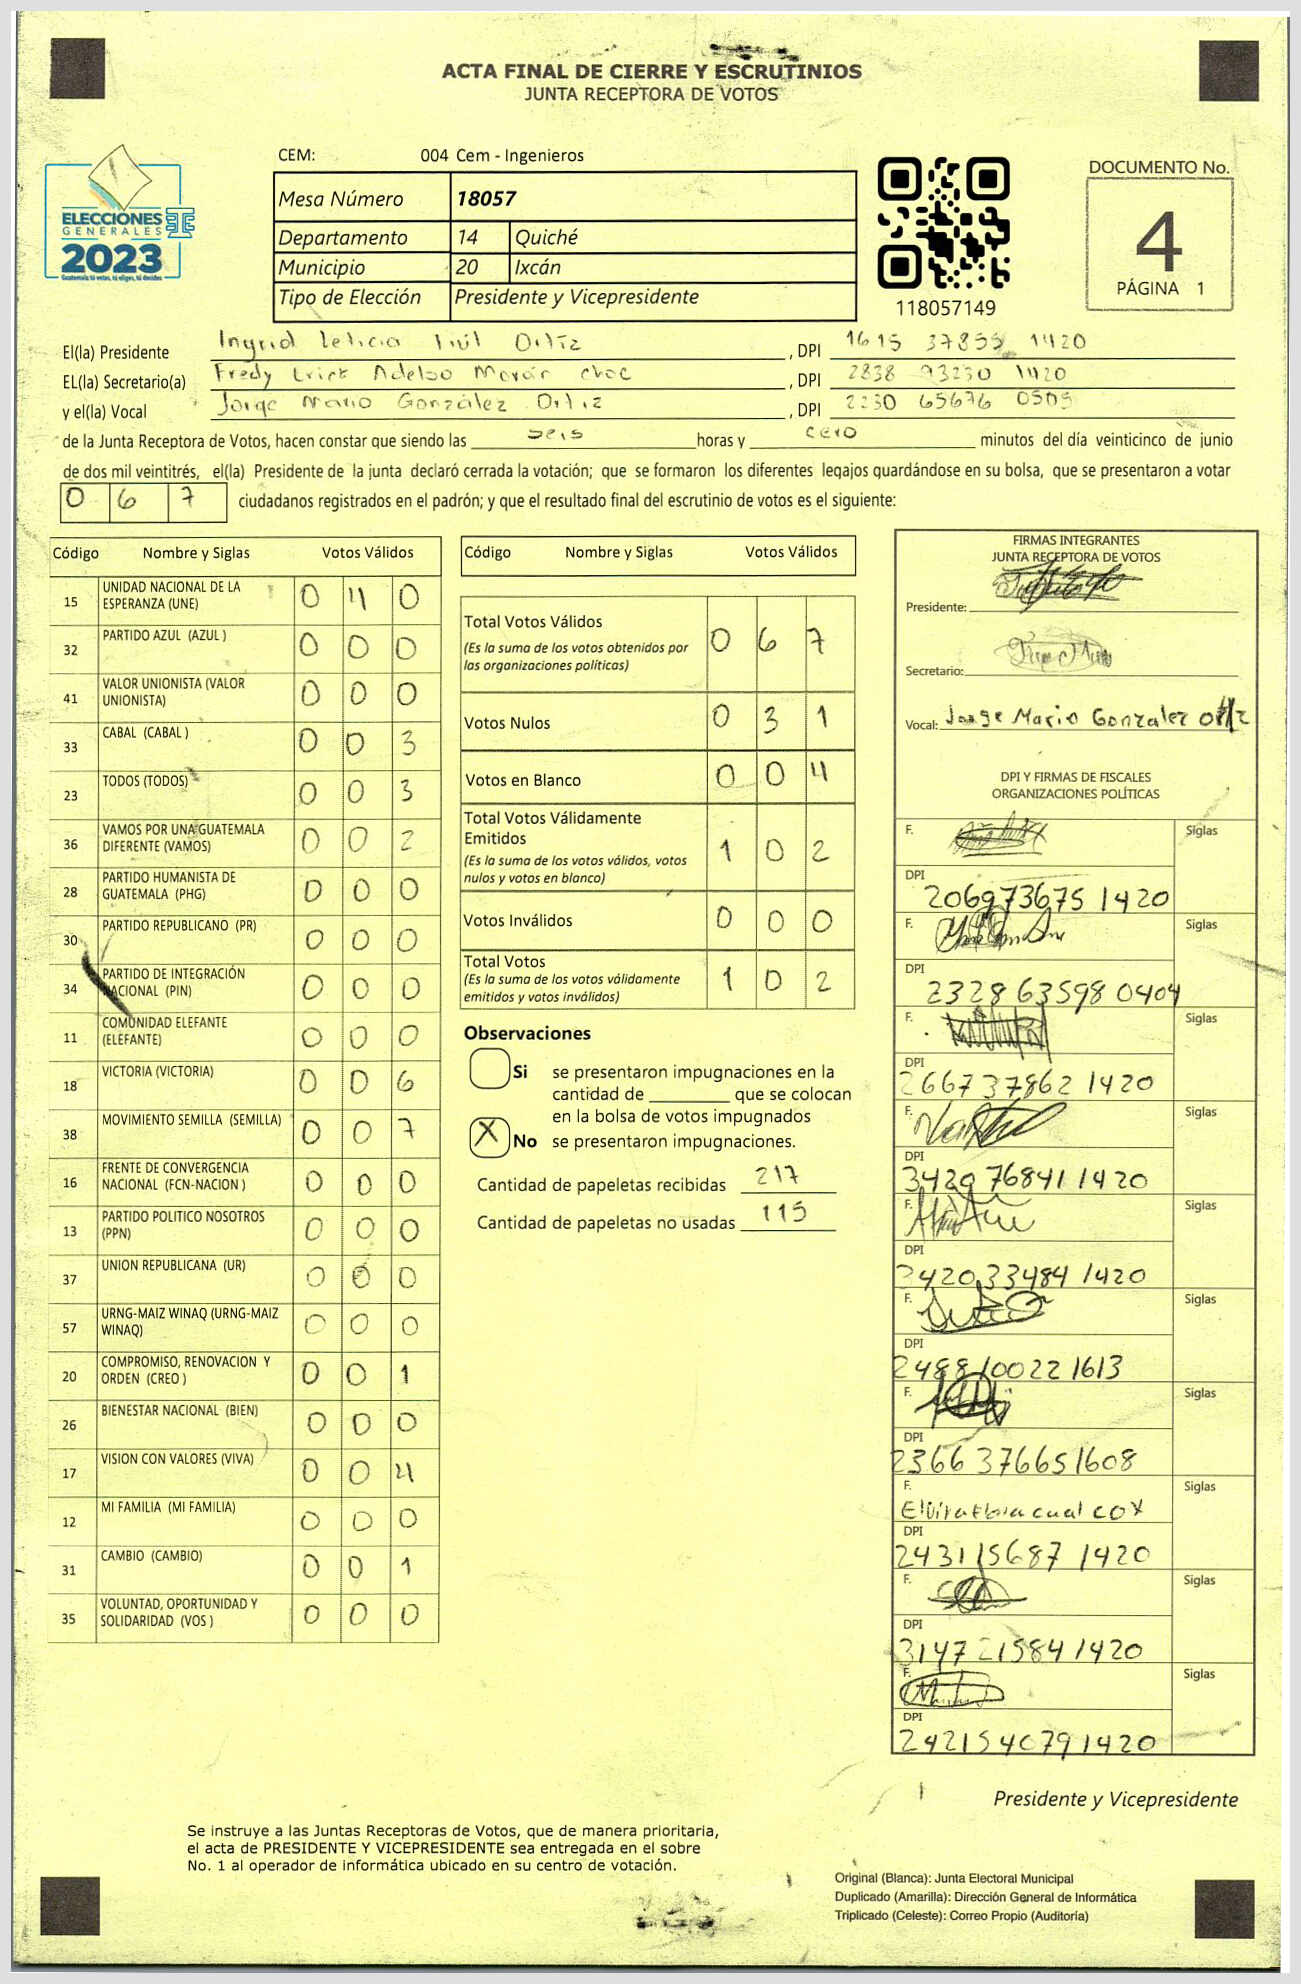 ACTA FINAL DE CIERRE Y ESCRUTINIOS
JUNTA RECEPTORA DE VOTOS
ELECCIONES
GENERALES
2023
Guatemala: tú votas, tú eliges, tú decides
CEM: 004 Cem - Ingenieros
Mesa Número 18057
Departamento 14 Quiché
Municipio 20 Ixcán
Tipo de Elección Presidente y Vicepresidente
118057149
DOCUMENTO No.
4
PÁGINA 1
El(la) Presidente Ingrid Leticia Ortiz , DPI 1615 37855 1420
EL(la) Secretario(a) Fredy Erick Adelso Morán choc , DPI 2838 93230 1420
y el(la) Vocal Jorge Mario González Ortiz , DPI 2230 65676 0505
de la Junta Receptora de Votos, hacen constar que siendo las seis horas y cero minutos del día veinticinco de junio
de dos mil veintitrés, el(la) Presidente de la junta declaró cerrada la votación; que se formaron los diferentes legajos guardándose en su bolsa, que se presentaron a votar
0 6 7 ciudadanos registrados en el padrón; y que el resultado final del escrutinio de votos es el siguiente:
Código Nombre y Siglas Votos Válidos
15 UNIDAD NACIONAL DE LA ESPERANZA (UNE) 0 4 0
32 PARTIDO AZUL (AZUL ) 0 0 0
41 VALOR UNIONISTA (VALOR UNIONISTA) 0 0 0
33 CABAL (CABAL ) 0 0 3
23 TODOS (TODOS) 0 0 3
36 VAMOS POR UNA GUATEMALA DIFERENTE (VAMOS) 0 0 2
28 PARTIDO HUMANISTA DE GUATEMALA (PHG) 0 0 0
30 PARTIDO REPUBLICANO (PR) 0 0 0
34 PARTIDO DE INTEGRACIÓN NACIONAL (PIN) 0 0 0
11 COMUNIDAD ELEFANTE (ELEFANTE) 0 0 0
18 VICTORIA (VICTORIA) 0 0 6
38 MOVIMIENTO SEMILLA (SEMILLA) 0 0 7
16 FRENTE DE CONVERGENCIA NACIONAL (FCN-NACION ) 0 0 0
13 PARTIDO POLITICO NOSOTROS (PPN) 0 0 0
37 UNION REPUBLICANA (UR) 0 0 0
57 URNG-MAIZ WINAQ (URNG-MAIZ WINAQ) 0 0 0
20 COMPROMISO, RENOVACION Y ORDEN (CREO ) 0 0 1
26 BIENESTAR NACIONAL (BIEN) 0 0 0
17 VISION CON VALORES (VIVA) 0 0 4
12 MI FAMILIA (MI FAMILIA) 0 0 0
31 CAMBIO (CAMBIO) 0 0 1
35 VOLUNTAD, OPORTUNIDAD Y SOLIDARIDAD (VOS ) 0 0 0
Código Nombre y Siglas Votos Válidos
Total Votos Válidos 0 6 7
(Es la suma de los votos obtenidos por
las organizaciones políticas)
Votos Nulos 0 3 1
Votos en Blanco 0 0 4
Total Votos Válidamente
Emitidos 1 0 2
(Es la suma de los votos válidos, votos
nulos y votos en blanco)
Votos Inválidos 0 0 0
Total Votos 1 0 2
(Es la suma de los votos válidamente
emitidos y votos inválidos)
Observaciones
Si se presentaron impugnaciones en la
cantidad de ________ que se colocan
en la bolsa de votos impugnados
X No se presentaron impugnaciones.
Cantidad de papeletas recibidas 217
Cantidad de papeletas no usadas 115
FIRMAS INTEGRANTES
JUNTA RECEPTORA DE VOTOS
Presidente:
Secretario:
Vocal: Jorge Mario Gonzalez Ortiz
DPI Y FIRMAS DE FISCALES
ORGANIZACIONES POLÍTICAS
F. Siglas
DPI
206973675 1420
F. Siglas
DPI
2328 63598 0404
F. Siglas
DPI
2667 37862 1420
F. Siglas
DPI
3420 76841 1420
F. Siglas
DPI
3420 33484 1420
F. Siglas
DPI
2488 10022 1613
F. Siglas
DPI
2366 37665 1608
F. Siglas
DPI
2431 15687 1420
F. Siglas
DPI
3147 21584 1420
F. Siglas
DPI
2421540791420
Presidente y Vicepresidente
Se instruye a las Juntas Receptoras de Votos, que de manera prioritaria,
el acta de PRESIDENTE Y VICEPRESIDENTE sea entregada en el sobre
No. 1 al operador de informática ubicado en su centro de votación.
Original (Blanca): Junta Electoral Municipal
Duplicado (Amarilla): Dirección General de Informática
Triplicado (Celeste): Correo Propio (Auditoría)